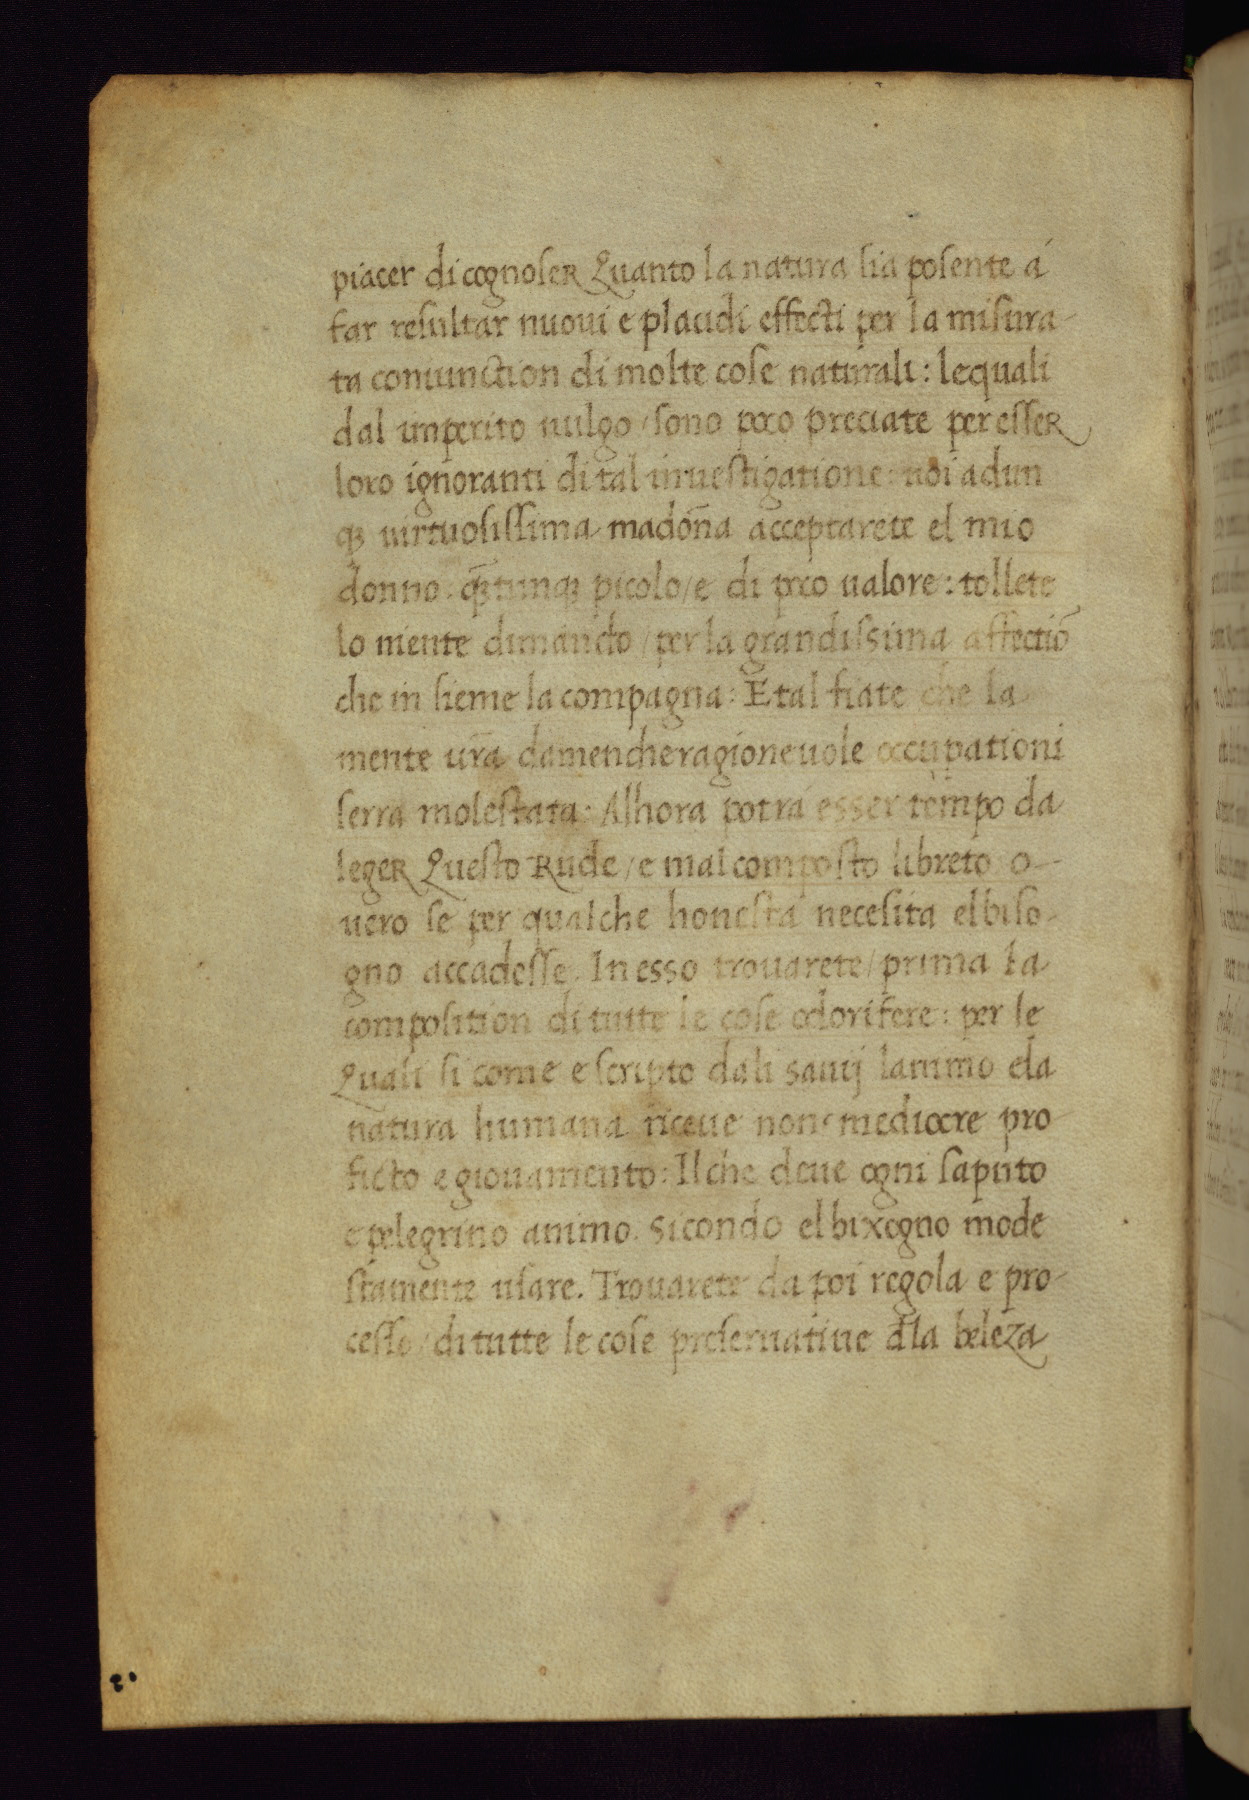 piacer di cognoser Quanto la natura sia posente á
far resultar nuoui e plaudi effecti per la misura-
ta coniunction di molte cose naturali : lequali
dal imperito uulgo / sono poco preciate per esser
loro ignoranti di tal inuestigatione : uoi adun
qꝫ uirtuosissima madoña acceptarete el mio
donno . qᷓtunqꝫ picolo / e di poco ualore : tollete
lo niente dimando / per la grandissima affectiō
che in sieme la compagna : E tal fiate che la
mente ur̃a damencheragioneuole occupationi
serra molestata : Alhora potrá esser tempo da
leger Questo Rude / e mal composto libreto o-
uero se per qualche honesta necesita el biso-
gno accadesse . In esso trouarete / prima la
composition di tutte le cose odorifere : per le
Quali si come e scripto dali sauij lanimo e la
natura humana riceue non mediocre pro
ficto e giouamento : Il che deue ogni saputo
e pelegrino animo . Sicondo el bixogno mode
stamente usare . Trouarete da poi regola e pro-
cesso / di tutte le cose preseruatiue d̄la beleza